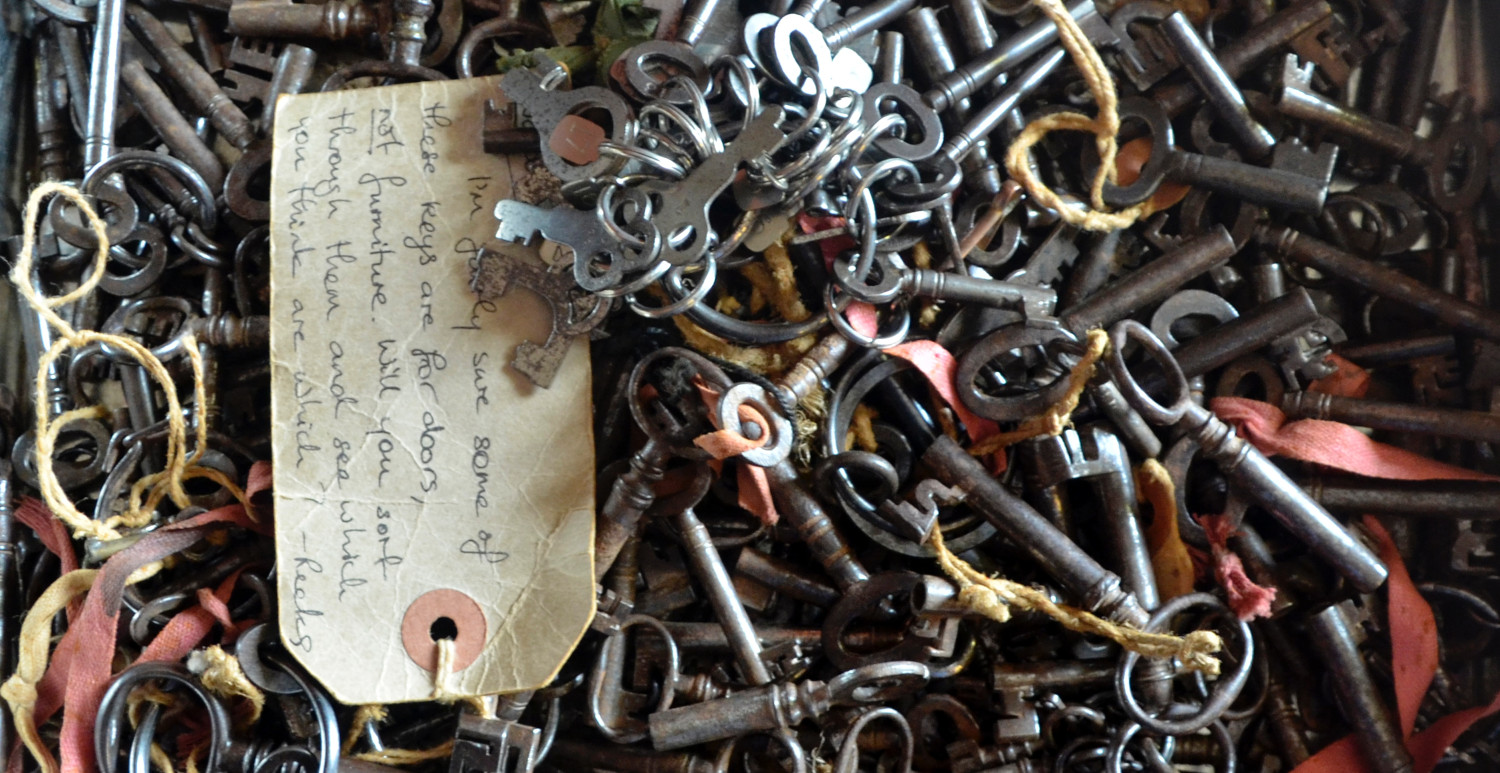 I'm fairly sure some of
these keys are for doors,
not furniture. Will you sort
through them and see which
you think are which, – heeks